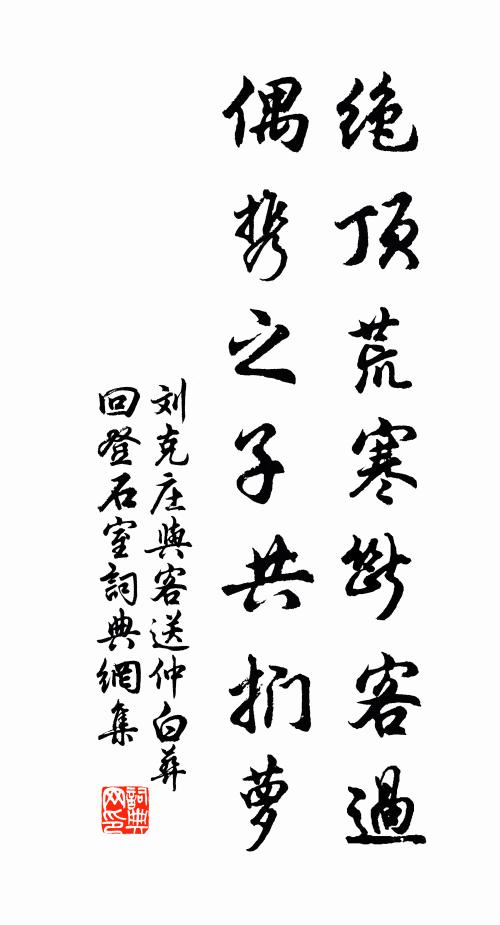 绝顶荒寒断客过
偶携之子共扪萝
刘克庄與客送仲白葬
回登石室詞典網集
詞典网印